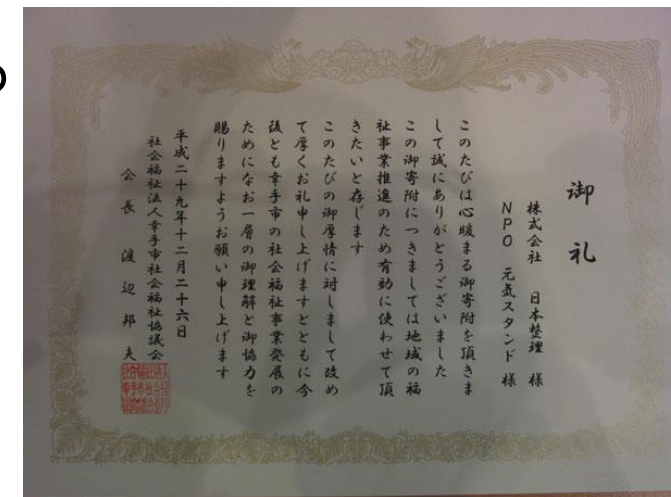 御礼
株式会社 日本整理 様
NPO 元気スタンド 様
このたびは心暖まる御寄附を頂きま
して誠にありがとうございました
この御寄附につきましては地域の福
祉事業推進のため有効に使わせて頂
きたいと存じます
このたびの御厚情に対しまして改め
て厚くお礼申し上げますとともに今
後とも幸手市の社会福祉事業発展の
ためになお一層の御理解と御協力を
賜りますようお願い申し上げます
平成二十九年十二月二十六日
社会福祉法人幸手市社会福祉協議会
会長 渡辺邦夫